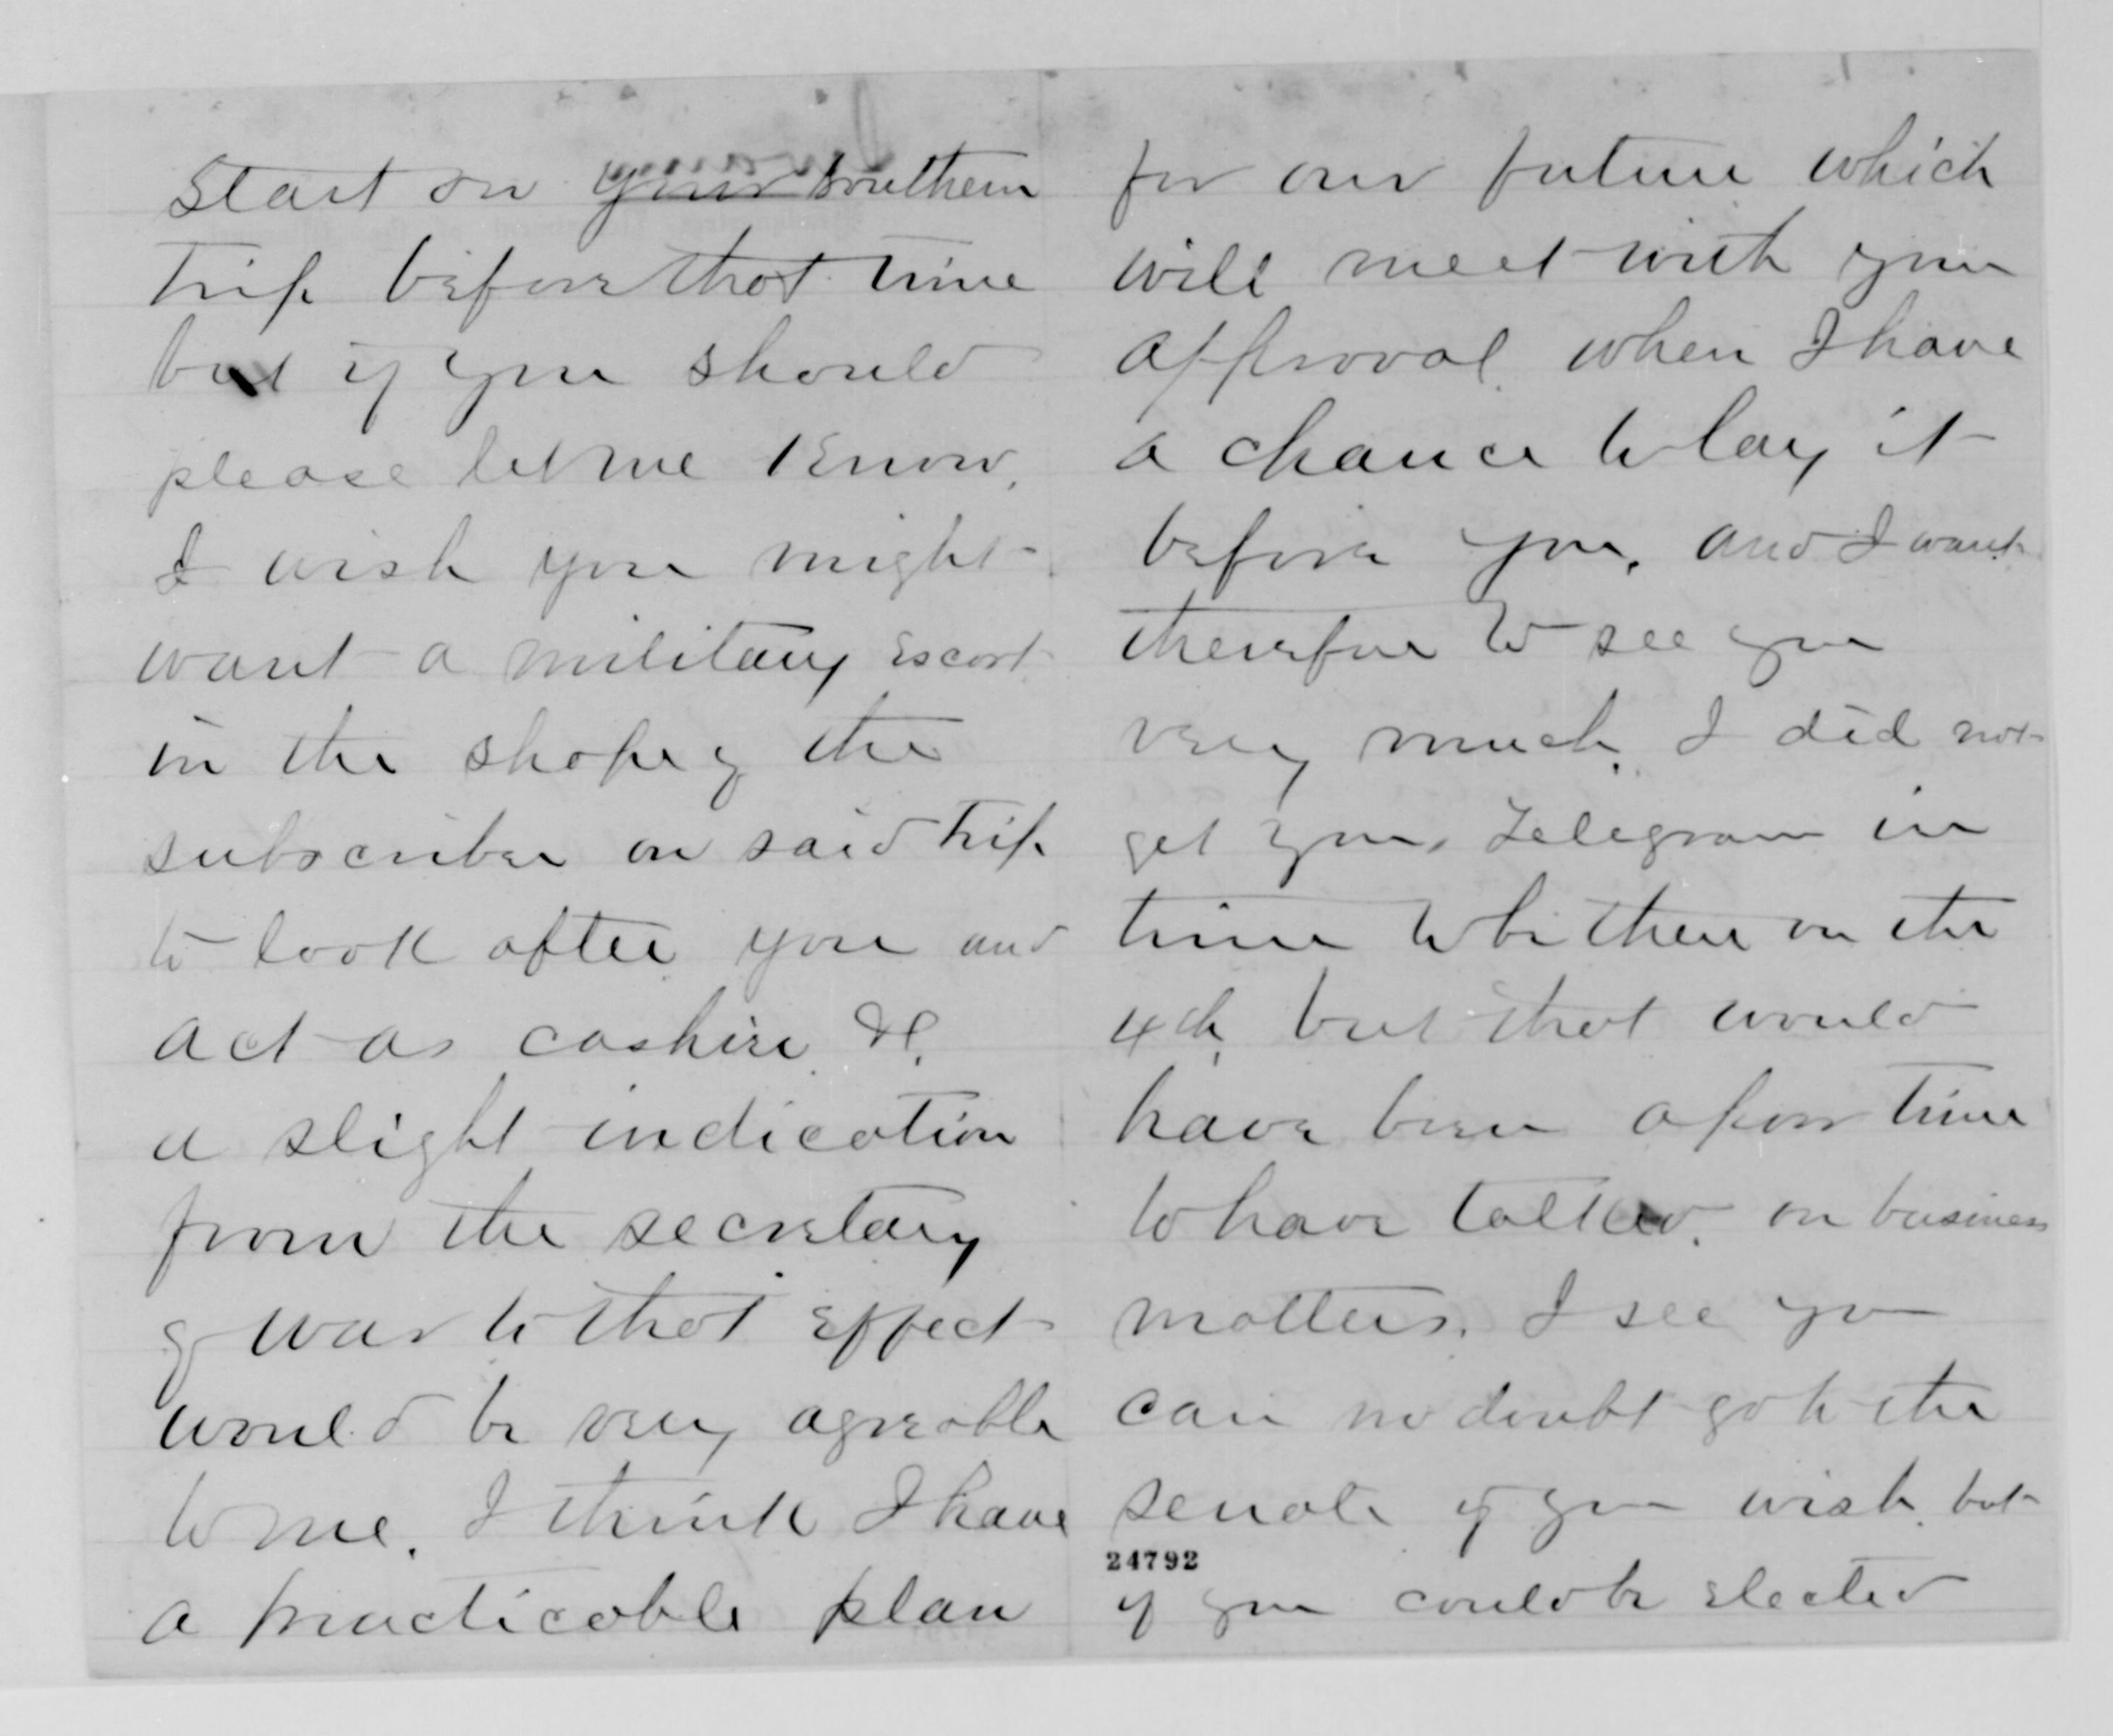 Start on your Southern
Trip before that time
but if you should
please let me Know.
I wish you might
want a military escort
in the shape of the
subscriber on said Trip
to look after you and
act as cashire &c.
a slight indication
from the secretary
of war to that effect
would be very agreable
to me. I think I have
a practicable plan
for our future which
will meet with your
approval when I have
a chance to lay it
before you. and I want
therefore to see you
very much. I did not
get your Telegram in
time to be there on the
4th, but that would
have been a poor time
to have talked on business
matters. I see you
can no doubt go to the
senate if you wish but
24792
if you could be elected